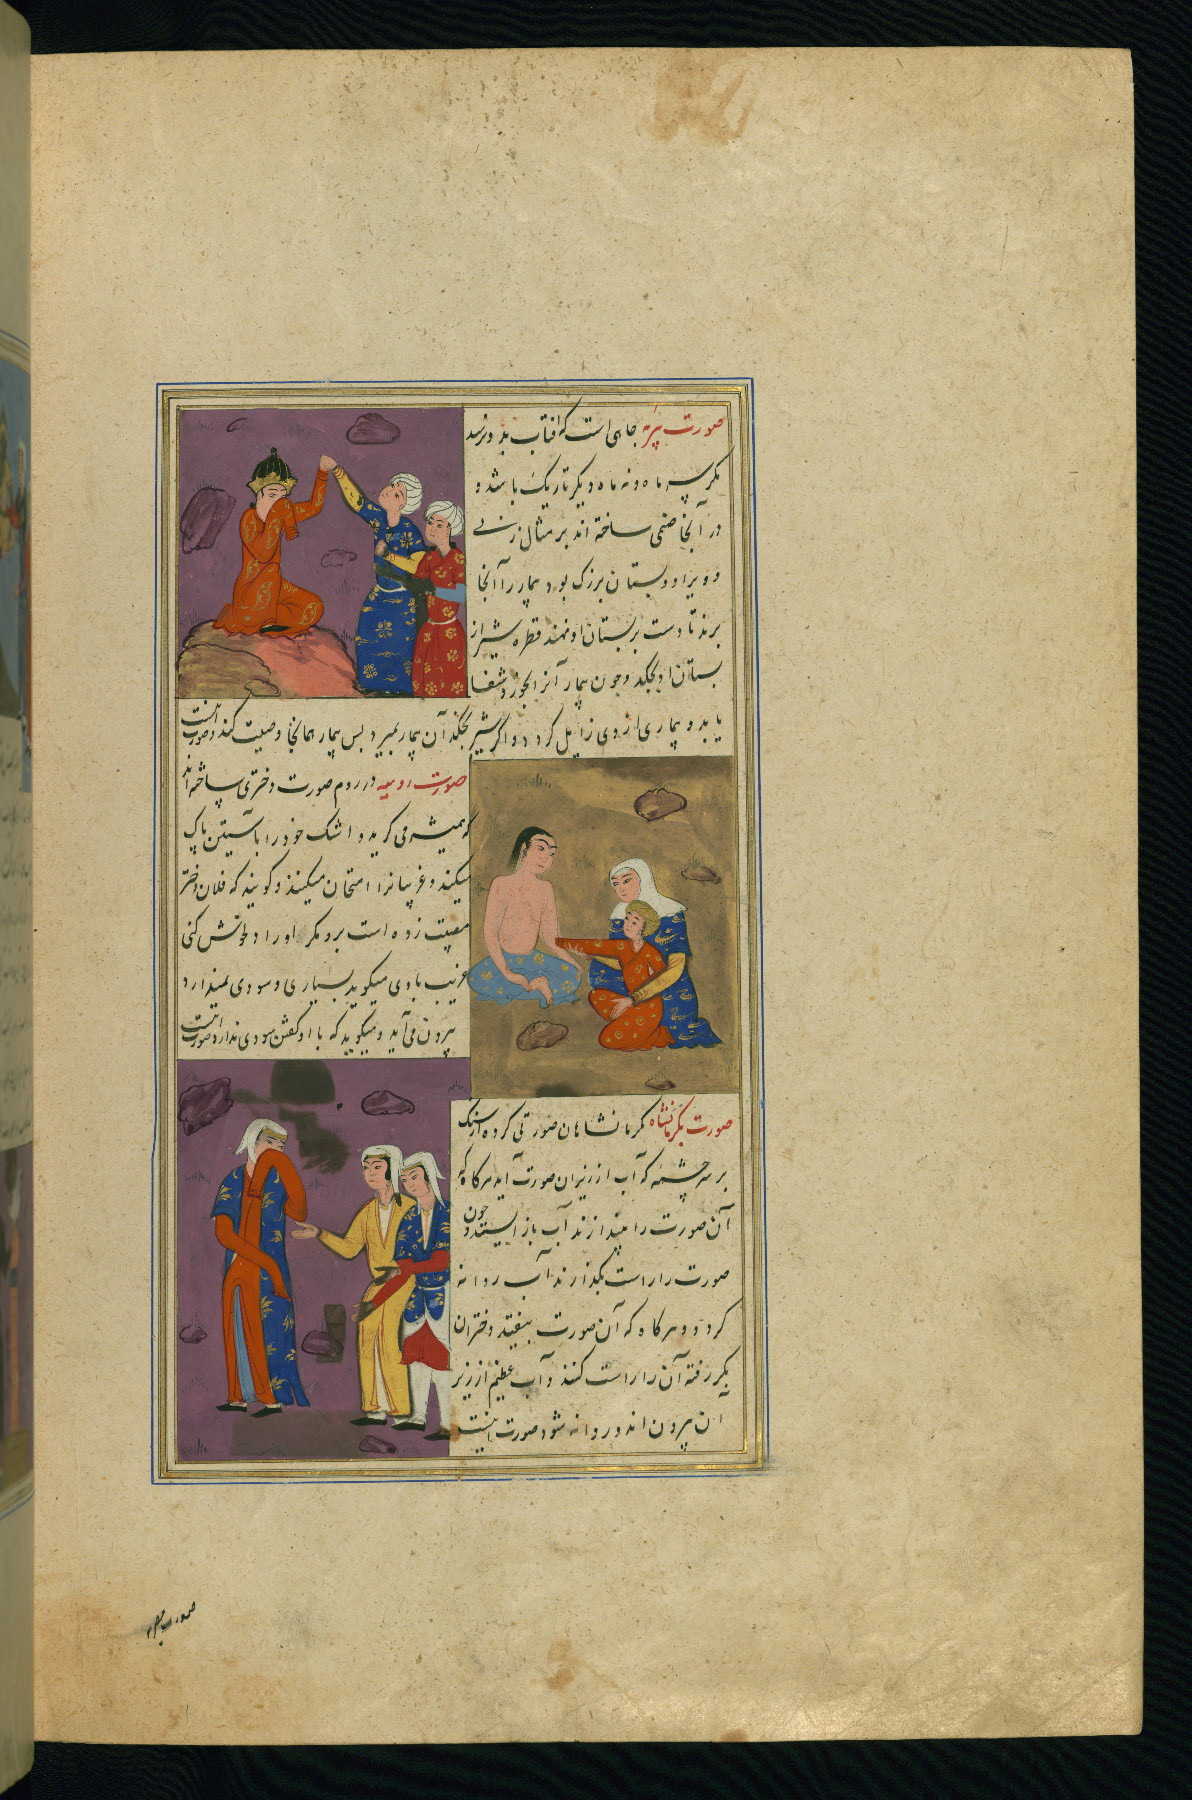 صورت پره جاهی است که افتاب بدو نرسد
مکر سه ماه و نه ماه دیکر تاریک باشد و
در آنجا صنمی ساخته اند بر مثال زنی
و ویرا دو بستان بزرک بود بیمار را آنجا
برند تا دست بر بستان او نهند قطره شیر از
بستان او بچکد و چون بیمار آنرا بخورد شفا
یابد و بیماری از وی زایل کردد و اکر شیر نچکد آن بیمار بمیرد بس بیمار همانجا وصیت کند و صورت اینست
صورت رومیه در روم صورت دختری ساخته اند
که همیشه می کرید و اشک خود را با آستین پاک
میکند و غریبانرا امتحان میکنند و کویند که فلان دختر
مصیبت زده است برو مکر او را دلخوش کنی
غریب با وی میکوید بسیاری و سودی نمیدارد
بیرون می آید و میکوید که با او کفتن سودی ندارد صورت اینست
صورت بکرمانشاه کرمانشاهان صورتی کرده از سنک
بر سر چشمه که آب از زیر آن صورت آید هر کاه که
آن صورت را بیندازند آب باز ایستد و چون
صورت را راست بکذارند آب روانه
کردد و هر کاه که آن صورت بیفتد دختران
بکر رفته آن را راست کنند و آب عظیم از زیر
آن بیرون اندر و روانه شود صورت اینست
صورت